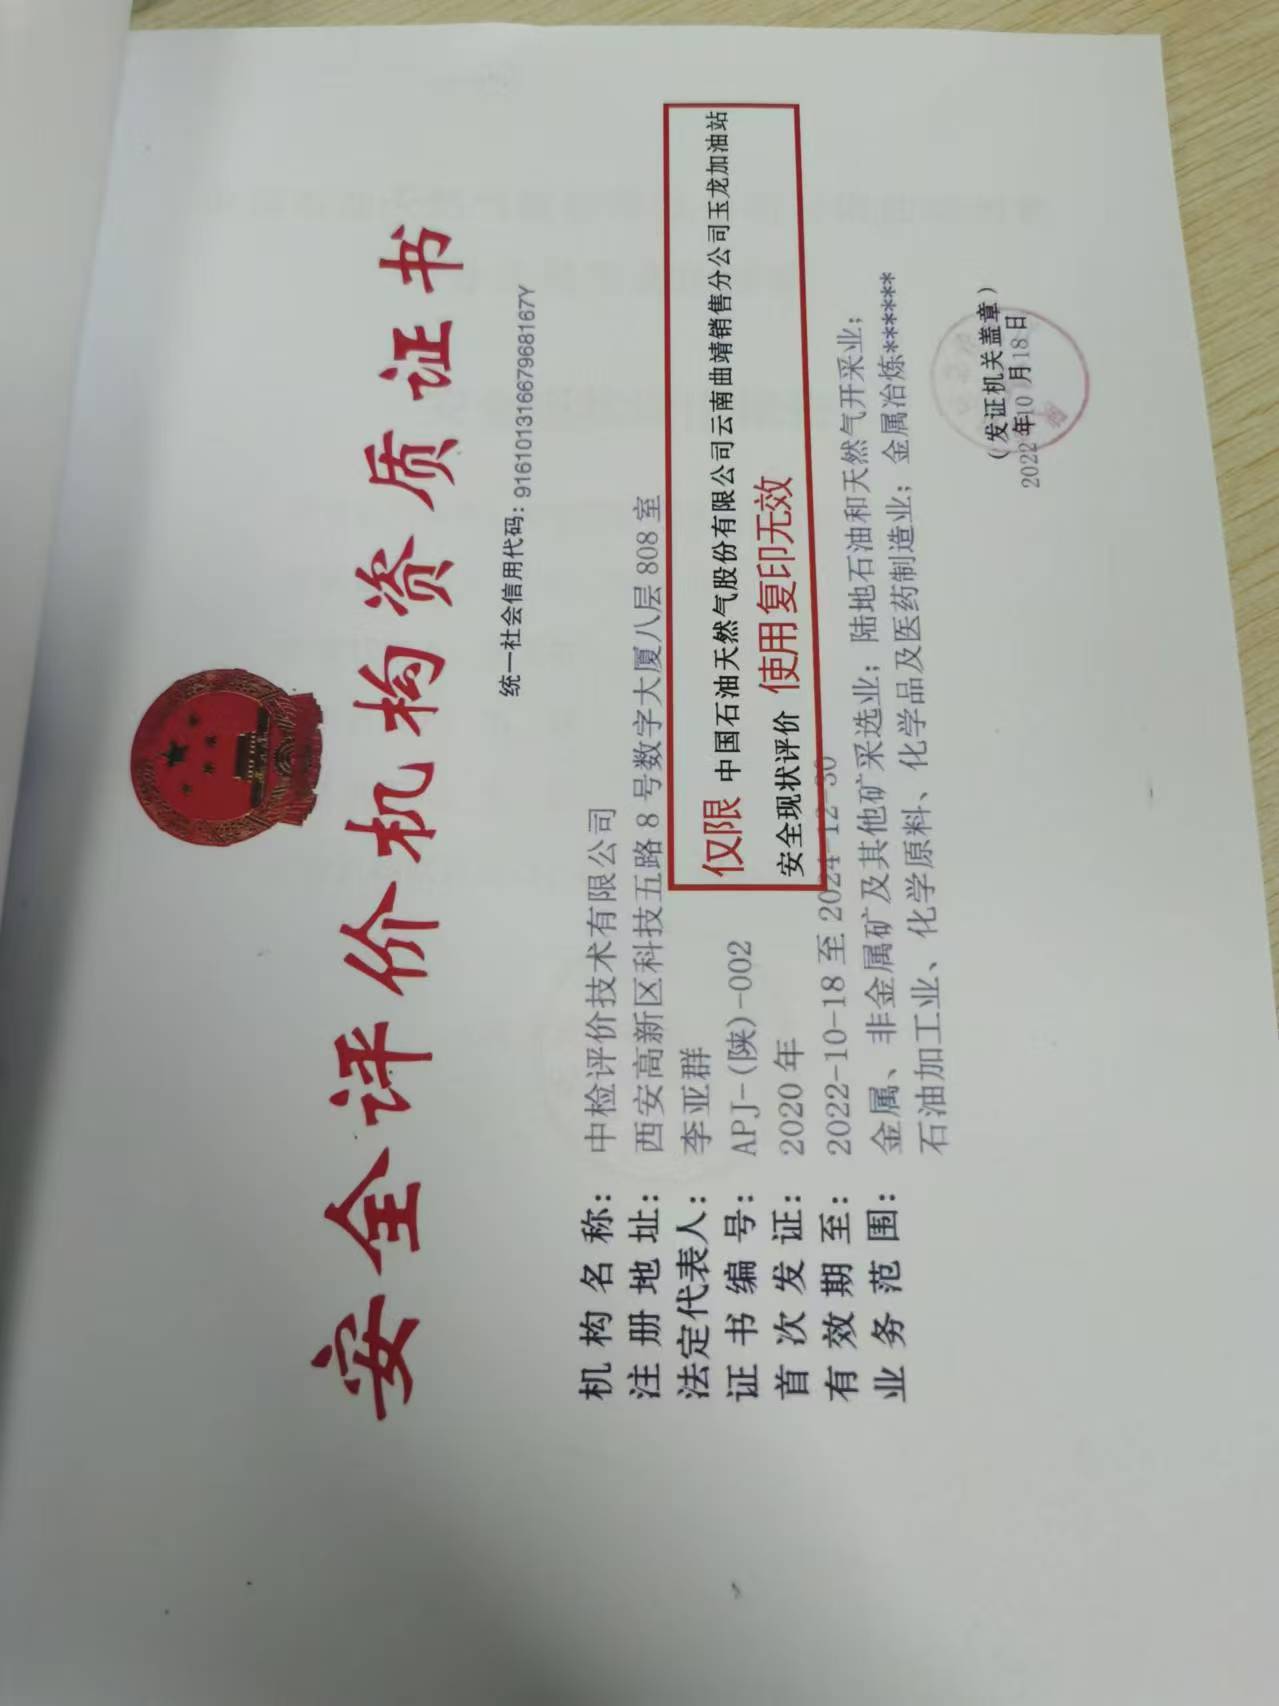 安全评价机构资质证书
统一社会信用代码：91610131667968167Y
机构名称：中检评价技术有限公司
注册地址：西安高新区科技五路8号数字大厦八层808室
法定代表人：李亚群
证书编号：APJ-(陕)-002
首次发证：2020年
有效期至：2022-10-18至2024-12-30
业务范围：金属、非金属矿及其他矿采选业；陆地石油和天然气开采业；
石油加工业、化学原料、化学品及医药制造业；金属冶炼******
仅限 中国石油天然气股份有限公司云南曲靖销售分公司玉龙加油站
安全现状评价 使用复印无效
（发证机关盖章）
2022年10月18日